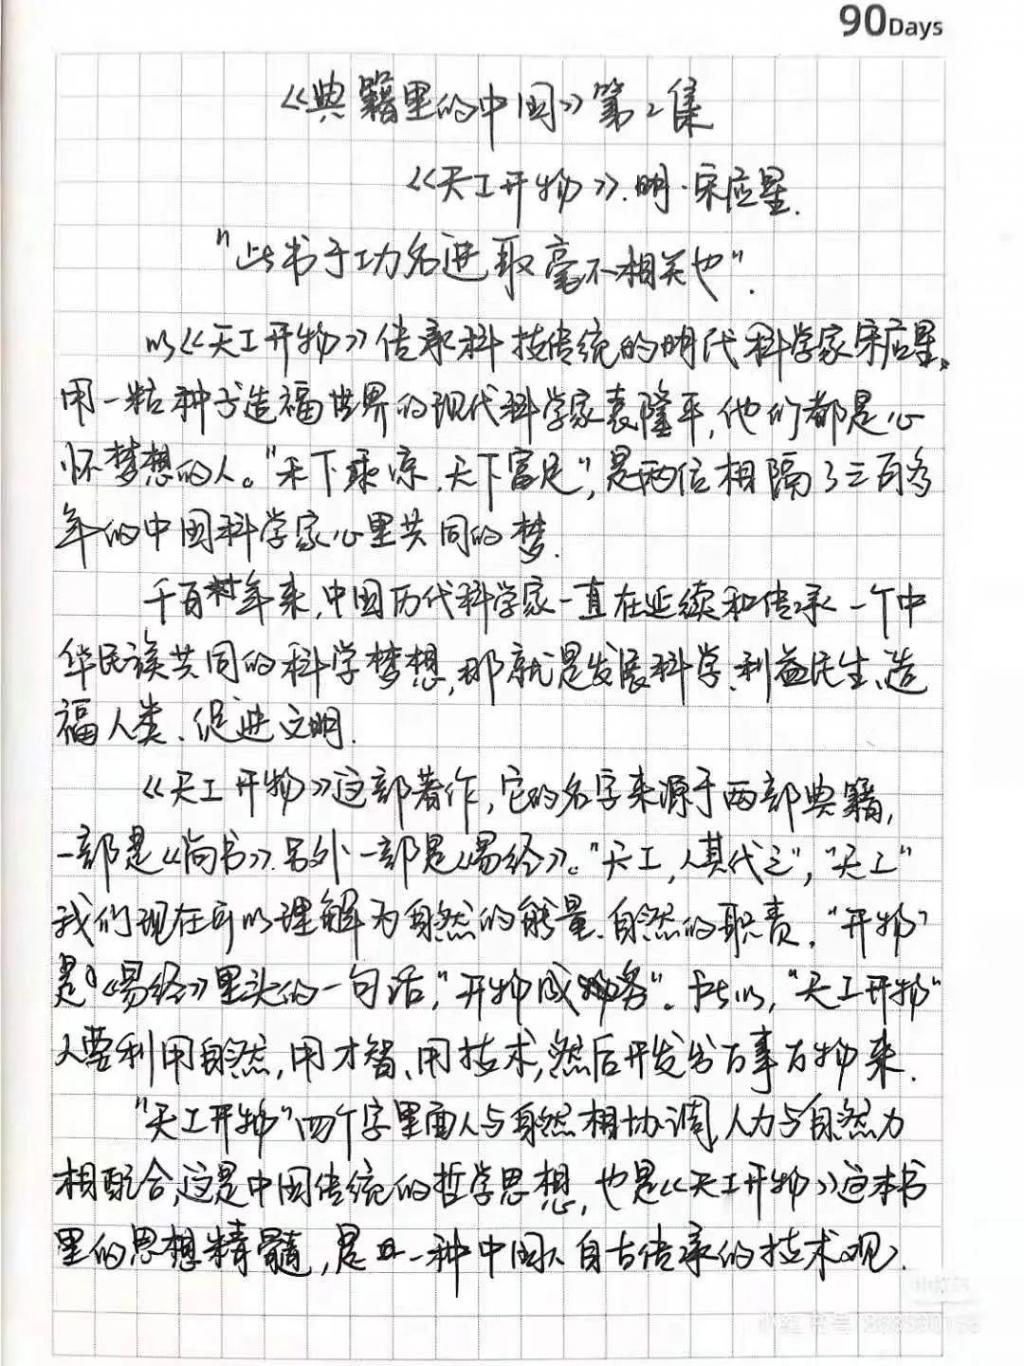 90Days
《典籍里的中国》第2集
《天工开物》.明·宋应星.
"此书于功名进取毫不相关也".
以《天工开物》传承科技传统的明代科学家宋应星,
用一粒种子造福世界的现代科学家袁隆平,他们都是心
怀梦想的人。"禾下乘凉.天下富足",是两位相隔了三百多
年的中国科学家心里共同的梦.
千百年来,中国历代科学家一直在延续和传承一个中
华民族共同的科学梦想,那就是发展科学、利益民生、造
福人类、促进文明.
《天工开物》这部著作,它的名字来源于两部典籍,
一部是《尚书》.另外一部是《易经》。"天工,人其代之","天工"
我们现在可以理解为自然的能量、自然的职责,"开物"
是《易经》里头的一句话,"开物成务".所以,"天工开物"
人要利用自然,用才智、用技术,然后开发出万事万物来.
"天工开物"四个字里面人与自然相协调,人力与自然力
相配合,这是中国传统的哲学思想,也是《天工开物》这本书
里的思想精髓,是一种中国人自古传承的技术观.